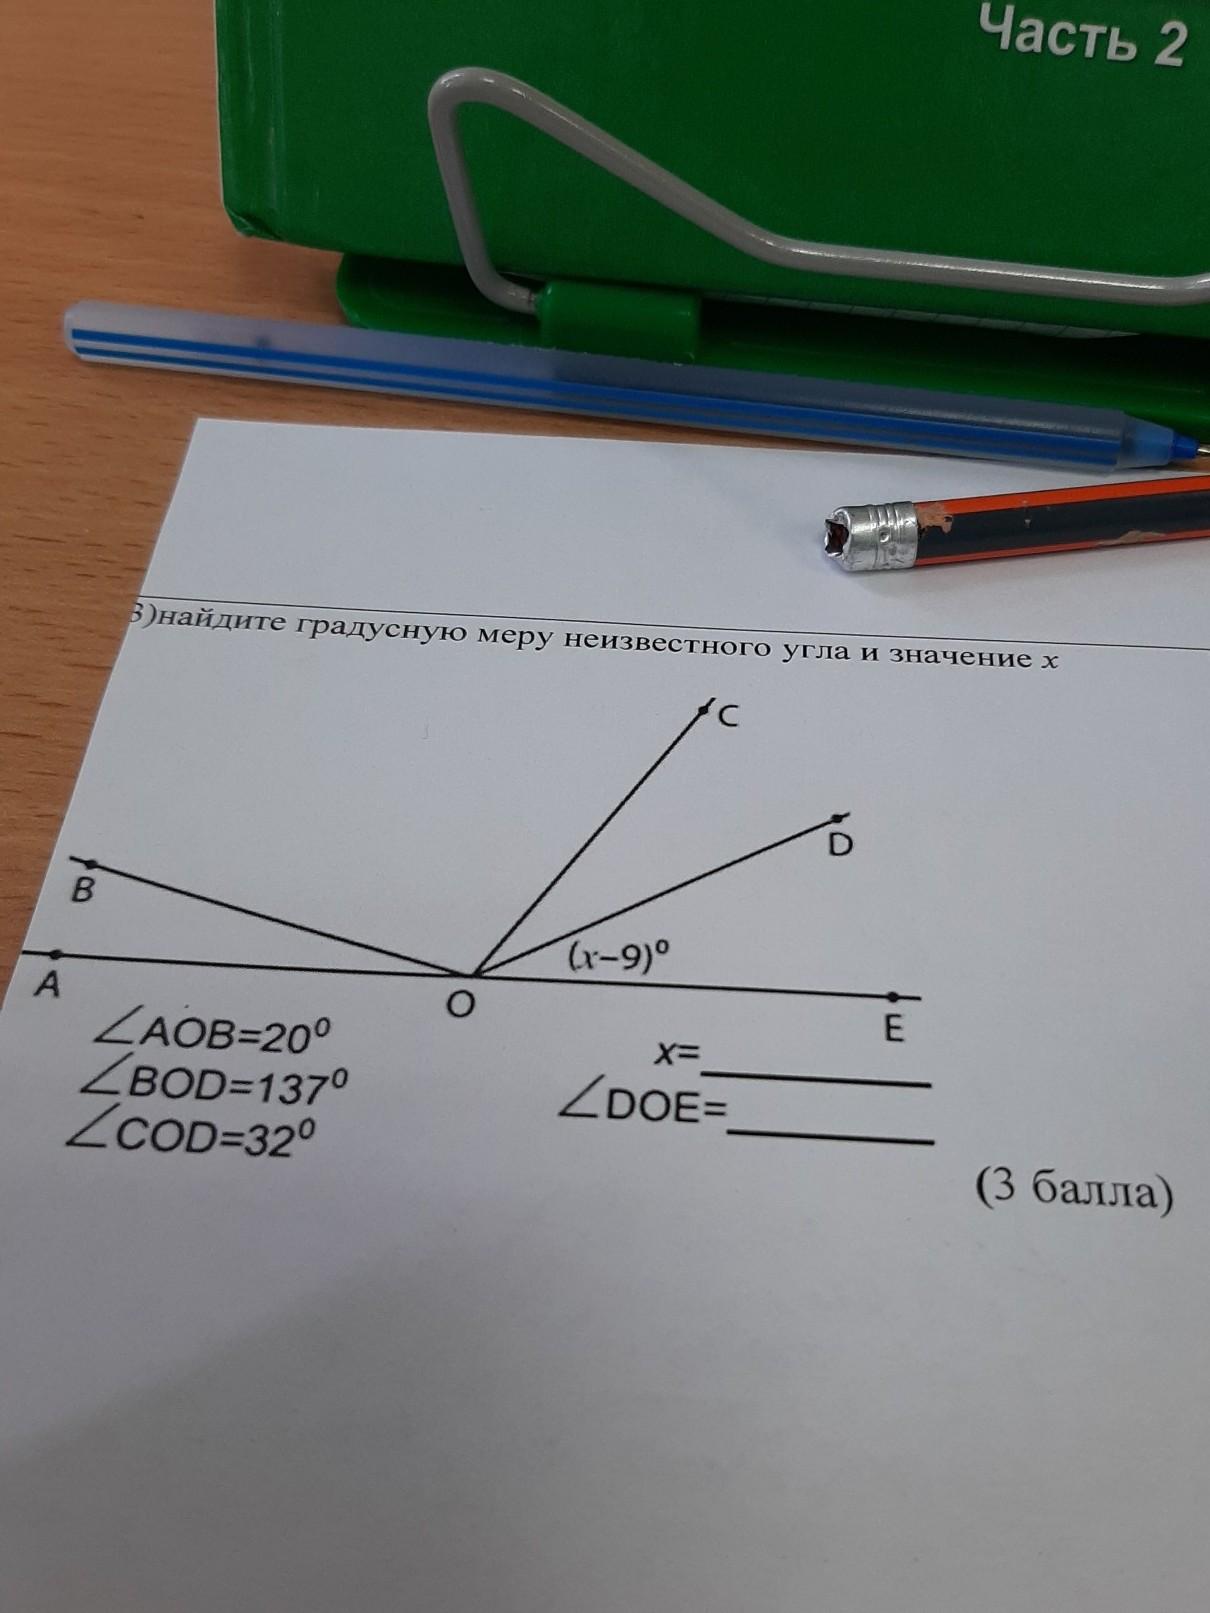 Часть 2
3)найдите градусную меру неизвестного угла и значение x
C
D
B
(x–9)⁰
A
O
E
∠AOB=20⁰
x=
∠BOD=137⁰
∠DOE=
∠COD=32⁰
(3 балла)